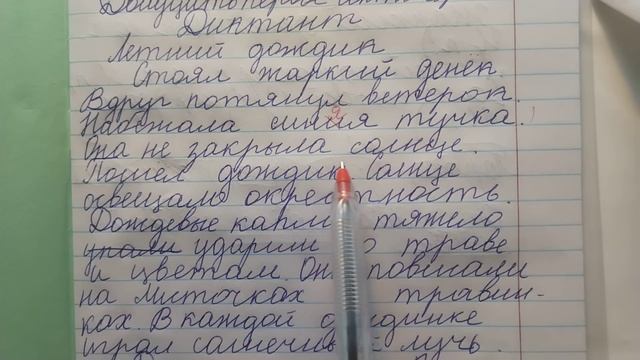 Диктант
Летний дождик
Стоял жаркий денёк.
Вдруг потянул ветерок.
Набежала синяя тучка.
Она не закрыла солнце.
Пошел дождик. Солнце
освещало окрестность.
Дождевые капли тяжело
упали ударили по траве
и цветам. Они повисали
на листочках травин-
ках. В каждой
играл солнечный лучь.